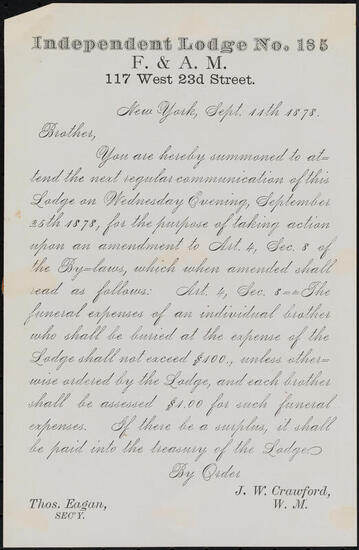 Independent Lodge No. 185
F. & A. M.
117 West 23d Street.
New York, Sept. 11th 1878.
Brother,
You are hereby summoned to at=
tend the next regular communication of this
Lodge on Wednesday Evening, September
25th 1878, for the purpose of taking action
upon an amendment to Art. 4, Sec. 8 of
the By=laws, which when amended shall
read as follows: Art. 4, Sec. 8==The
funeral expenses of an individual brother
who shall be buried at the expense of the
Lodge shall not exceed $100., unless other=
wise ordered by the Lodge, and each brother
shall be assessed $1.00 for such funeral
expenses. If there be a surplus, it shall
be paid into the treasury of the Lodge.
By Order
J. W. Crawford,
W. M.
Thos. Eagan,
SEC'Y.